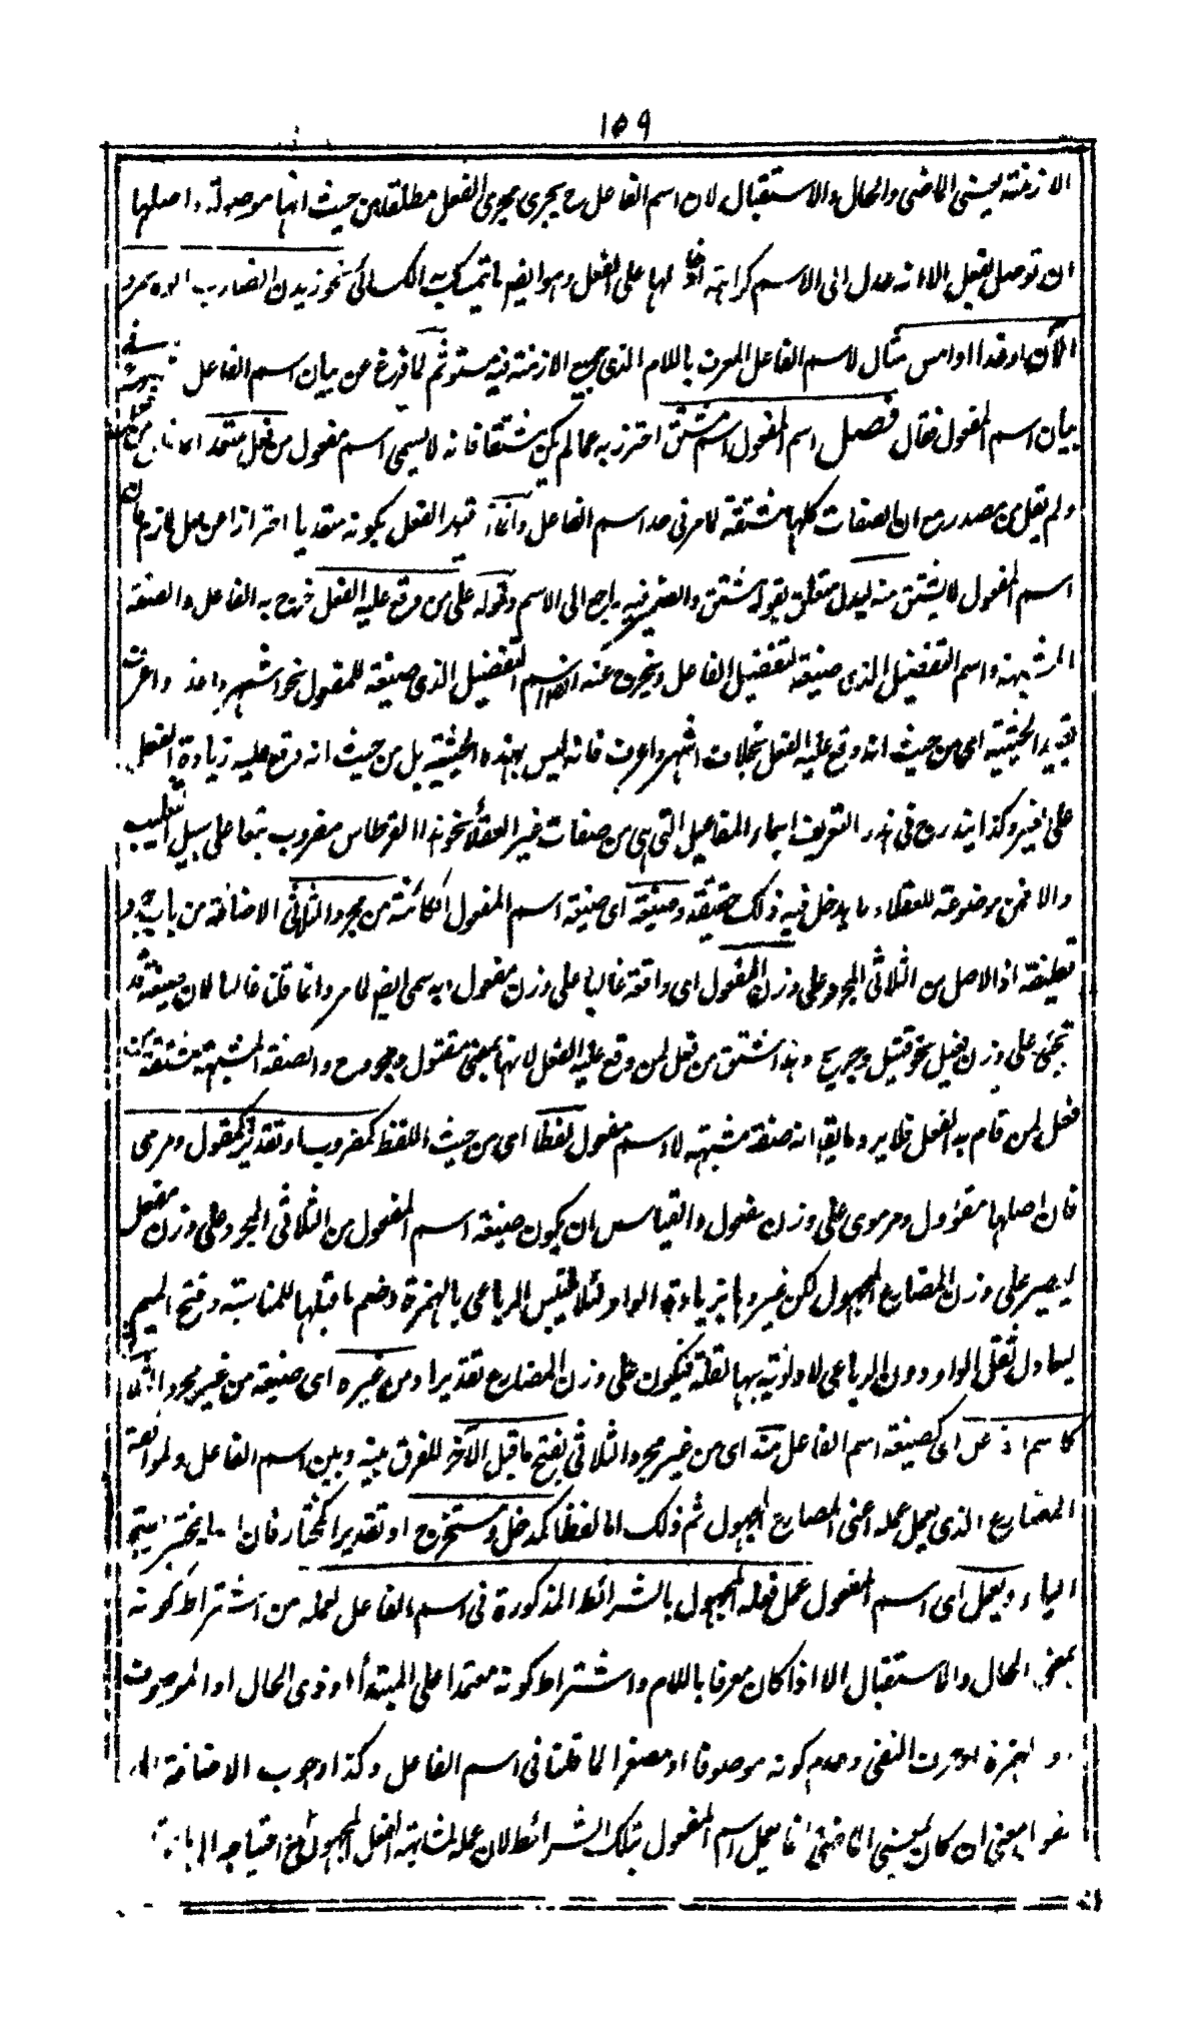 ١٥٩
الازمنة يعنى الماضى والحال والاستقبال لان اسم الفاعل ح يجرى مجرى الفعل مطلقا من حيث انها موصولة واصلها
ان توصل بفعل الا انه عدل الى الاسم كراهة لها على الفعل وهو ايضا يتمسك به الكسائى نحو زيد ن الضارب ابوه عمرو
الآن او غدا او امس مثال لاسم الفاعل المعرف باللام الذى جميع الازمنة فيه مستو ثم لما فرغ عن بيان اسم الفاعل شرع فى
بيان اسم المفعول فقال فصل اسم المفعول اسم مشتق احترز به عما لم يكن مشتقا فانه لا يسمى اسم مفعول من فعل متعد
ولم يقل من مصدر مع ان الصفات كلها مشتقة لما مر فى حد اسم الفاعل وانما قيد الفعل بكونه متعديا احترازا عن فعل لازم فان
اسم المفعول لا يشتق منه ليدل متعلق بقوله اشتق والضمير فيه راجع الى الاسم وقوله على من وقع عليه الفعل خرج به الفاعل والصفة
المشبهة واسم التفضيل الذى صيغة لتفضيل الفاعل ويخرج عنه ايضا اسم التفضيل الذى صيغة للمفعول نحو اشهر واعذر واعرف
بقيد الحيثية اى من حيث انه وقع عليه الفعل بخلاف اشهر واعرف فانه ليس بهذه الحيثية بل من حيث انه وقع عليه زيادة الفعل
على غيره وكذا يندرج فى هذا التعريف اسماء المفاعيل التى هى من صفات غير العقلاء نحو هذا القرطاس مضروب تبعا على سبيل التغليب
والا فمن موضوعة للعقلاء ما يدخل فيه ذلك حقيقة وصيغة اى صيغة اسم المفعول الكائنة من مجرد الثلاثى الاضافة من باب جرد
قطيفة اذ الاصل من الثلاثى المجرد على وزن المفعول اى واقعة غالبا على وزن مفعول وبه سمى ايضا لما مر وانما قلنا غالبا لان صيغته قد
تجئى على وزن فعيل نحو قتيل وجريح وهذا اشتق من فعل لمن وقع عليه الفعل لانها بمعنى مقتول ومجروح والصفة المشبهة مشتقة من
فعل لمن قام به الفعل فلا يرد ما يقال انه صفة مشبهة لا اسم مفعول لفظا اى من حيث اللفظ كمضروب او تقديرا كمقول ومرمى
فان اصلها مقوول ومرموى على وزن مفعول والقياس ان يكون صيغة اسم المفعول من الثلاثى المجرد على وزن مفعل
ليصير على وزن المضارع المجهول لكن غيروها بزيادة الواو لئلا يلتبس الرباعى بالهمزة وضم ما قبلها للمناسبة وفتح الميم
ليعادل ثقل الواو دون الرباعى لاولويته بها لقلة فيكون على وزن المضارع تقديرا ومن غيره اى صيغة من غير مجرد الثلاثى
كاسم الفاعل اى كصيغة اسم الفاعل منه اى من غير مجرد الثلاثى بفتح ما قبل الآخر للفرق بينه وبين اسم الفاعل ولموافقة
المضارع الذى يعمل عمله اعنى المضارع المجهول ثم ذلك اما لفظا كمدخل ومستخرج او تقديرا كمختار فان اصله مختير بفتح
الياء ويعمل اى اسم المفعول عمل فعله المجهول بالشرائط المذكورة فى اسم الفاعل لعمله من اشتراط كونه
بمعنى الحال والاستقبال الا اذا كان معرفا باللام واشتراط كونه معتمدا على المبتدأ او ذى الحال او الموصوف
او الهمزة او حرف النفى وعدم كونه موصوفا او مصغرا لما قلنا فى اسم الفاعل وكذا وجوب الاضافة
معنى ان كان بمعنى الماضى انما يعمل اسم المفعول بتلك الشرائط لان عمله لمشابهة الفعل المجهول مع احتياجه